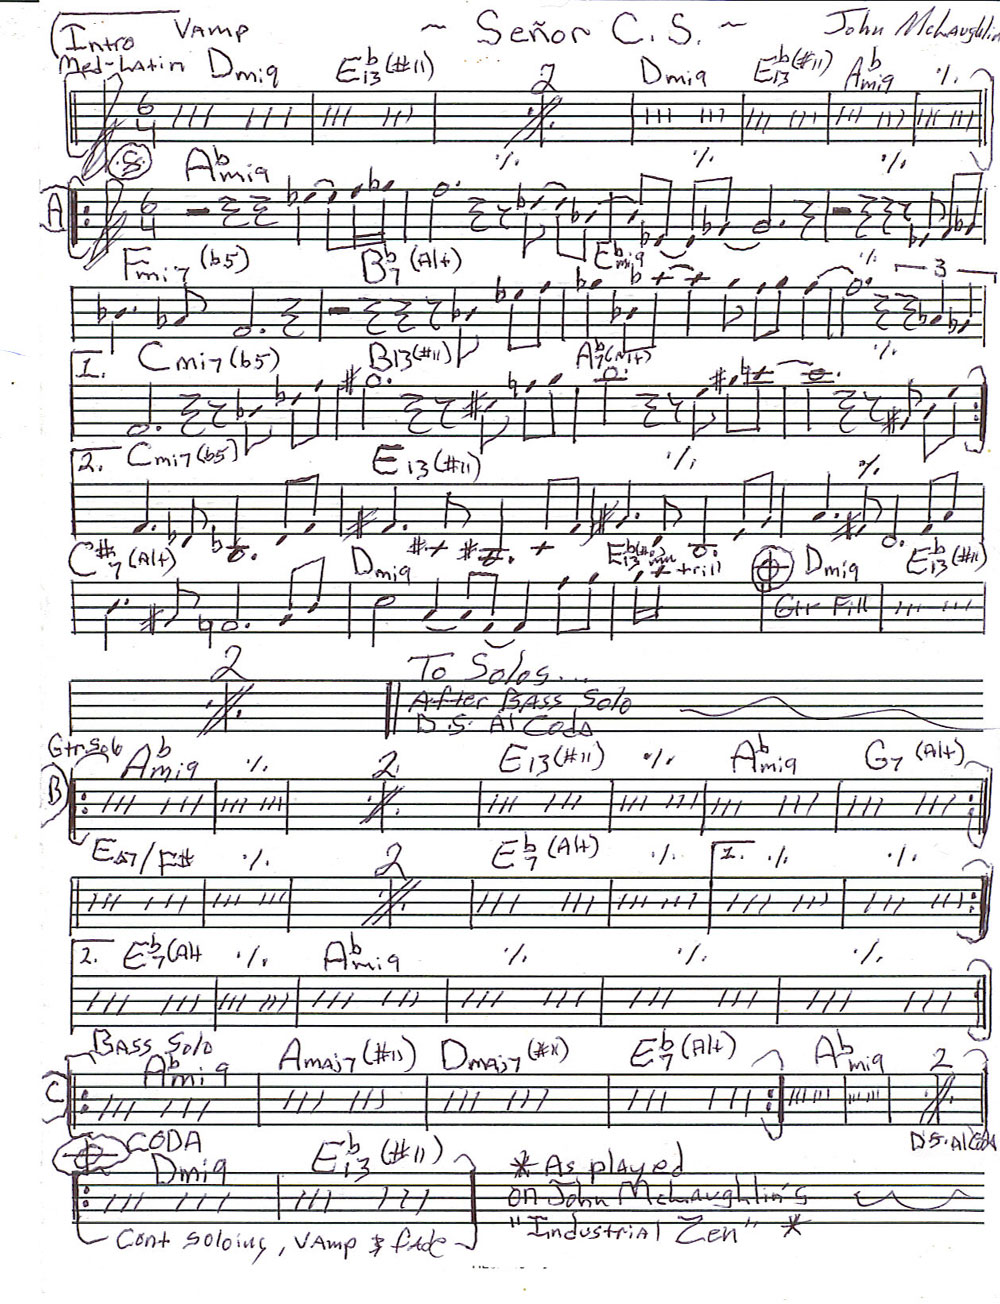 Intro Vamp ~ Señor C.S. ~ John McLaughlin
Med-Latin Dmi9 Eb13(#11) 2 Dmi9 Eb13(#11) Abmi9 ٪
6 4
A Abmi9 ٪ ٪ ٪
6 4
Fmi7(b5) Bb7(Alt) Ebmi9 ٪ 3
1. Cmi7(b5) B13(#11) Ab7(Alt) ٪
2. Cmi7(b5) E13(#11) ٪ ٪
C#7(Alt) Dmi9 Eb13(#11) trill Dmi9 Eb13(#11)
Gtr Fill
2 To Solos...
After Bass Solo
D.S. Al Coda
Gtr. Solo
B Abmi9 ٪ 2 E13(#11) ٪ Abmi9 G7(Alt)
EΔ7/F# ٪ 2 Eb7(Alt) ٪ 1. ٪ ٪
2. Eb7(Alt ٪ Abmi9 ٪ ٪ ٪
Bass Solo
C Abmi9 Amaj7(#11) Dmaj7(#11) Eb7(Alt) Abmi9 2
D.S. Al Coda
CODA
Dmi9 Eb13(#11)
Cont soloing, vamp & fade
* As played
on John McLaughlin's
"Industrial Zen" *